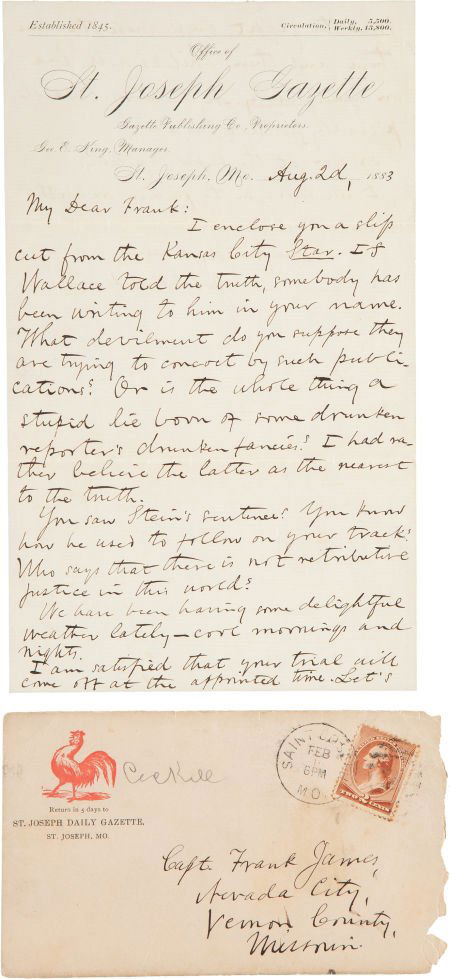 Established 1845.
Circulation, { Daily, 5,500.
Weekly, 15,800.
Office of
St. Joseph Gazette
Gazette Publishing Co., Proprietors.
Geo E. King, Manager.
St. Joseph, Mo. Aug. 2d, 1883
My Dear Frank:
I enclose you a slip
cut from the Kansas City Star. If
Wallace told the truth, somebody has
been writing to him in your name.
What devilment do you suppose they
are trying to concoct by such publi-
cations? Or is the whole thing a
stupid lie born of some drunken
reporter's drunken fancies? I had ra-
ther believe the latter as the nearest
to the truth.
You saw Stein's sentence? You know
how he used to follow on your track?
Who says that there is not retributive
justice in this world?
We have been having some delightful
weather lately—cool mornings and
nights.
I am satisfied that your trial will
come off at the appointed time. Let's
Return in 5 days to
ST. JOSEPH DAILY GAZETTE,
ST. JOSEPH, MO.
SAINT
FEB
6PM
MO.
TWO CENTS
Capt. Frank James,
Nevada City,
Vernon County,
Missouri.